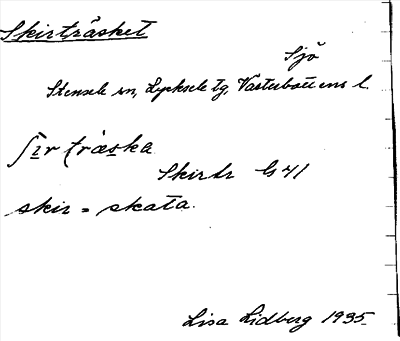 Skirträsket
Sjö
Stensele sn, Lycksele tg, Västerbottens l.
ʃir träska
Skirtr G 41
skir = skata.
Lisa Lidberg 1935